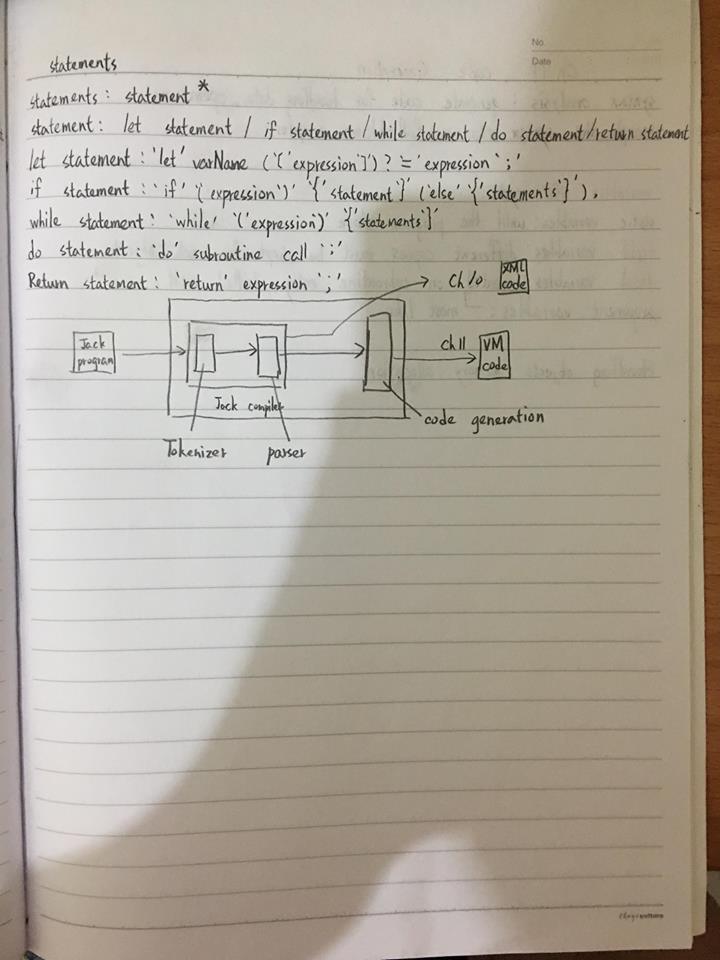 No.
Date
statements
statements : statement *
statement : let statement / if statement / while statement / do statement / return statement
let statement : 'let' varName ('['expression']') ? '=' expression ';'
if statement : 'if' '(expression')' '{'statement'}' ('else' '{'statements'}').
while statement : 'while' '('expression')' '{'statements'}'
do statement : 'do' subroutine call ';'
Return statement : 'return' expression ';'
ch 10
XML
code
Jack
program
ch11
VM
code
Jack compiler
code generation
Tokenizer
parser